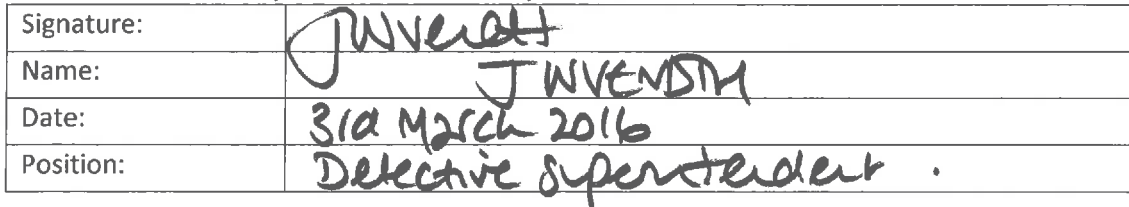 Signature:
Name: J
Date: 3rd March 2016
Position: Detective Superintendent.